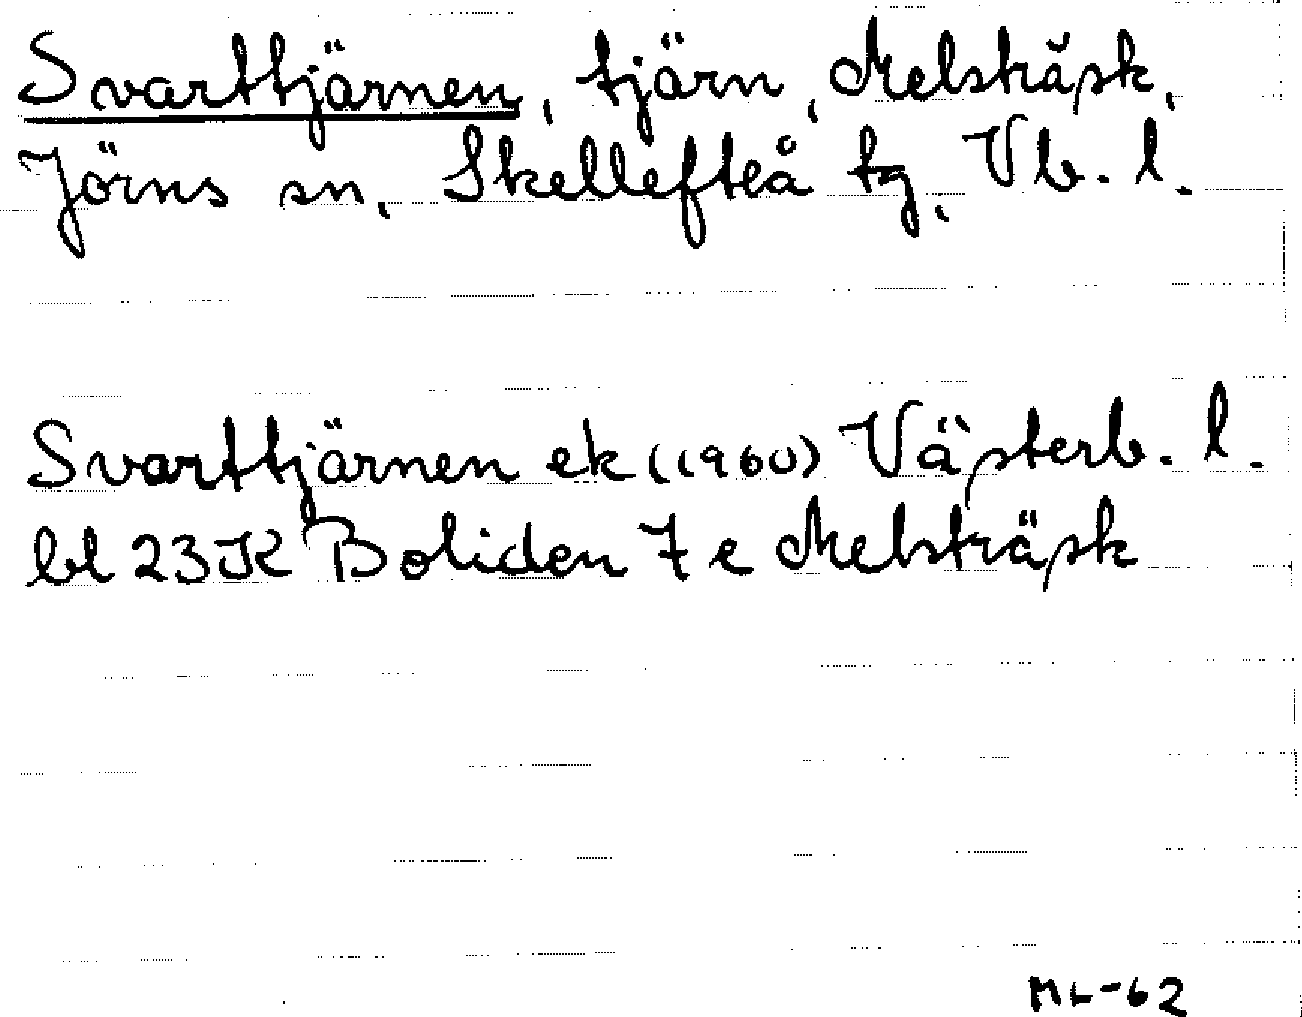 Svarttjärnen, tjärn, Melsträsk,
Jörns sn, Skellefteå tg, Vb. l.
Svarttjärnen ek (1960) Västerb. l.
bl 23K Boliden 7 e Melsträsk
ML-62